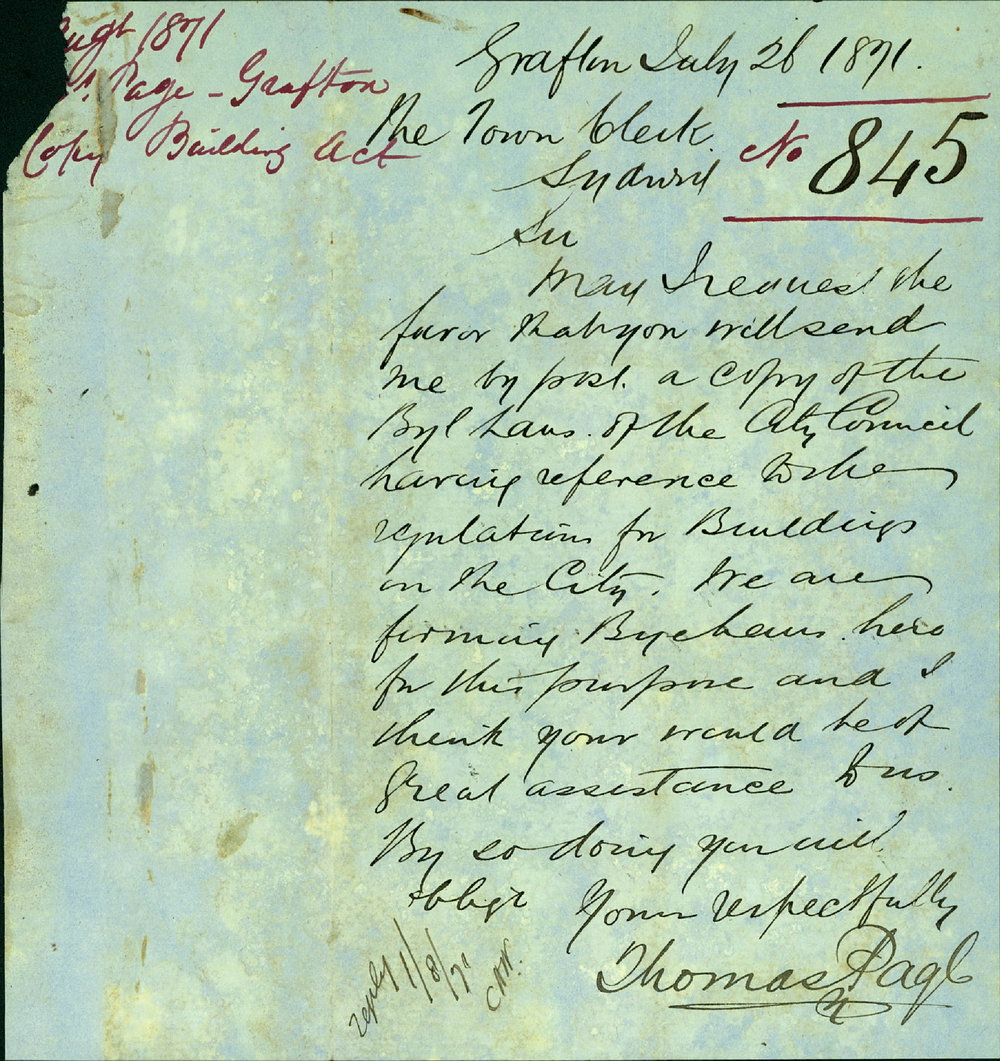 Augt 1871
Page - Grafton
Copy Building Act
Grafton July 26 1871.
No 845
The Town Clerk
Sydney
Sir
May I request the
favor that you will send
me by post. a copy of the
Bye Laws. of the City Council
having reference to the
regulations for Buildings
in the City. We are
forming Bye Laws. here
for this purpose and I
think your would be of
great assistance to us.
By so doing you will
oblige Yours respectfully
Thomas Page
reply 1/8/71